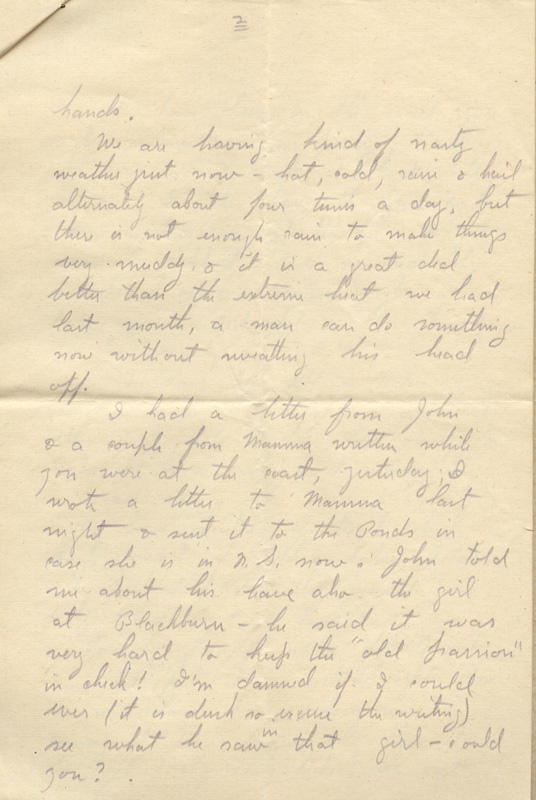 2
hands.
We are having kind of nasty
weather just now - hot, cold, rain & hail
alternately about four times a day, but
there is not enough rain to make things
very muddy, & it is a great deal
better than the extreme heat we had
last month, a man can do something
now without sweating his head
off.
I had a letter from John
& a couple from Mamma written while
you were at the coast, yesterday; I
wrote a letter to Mamma last
night & sent it to the Ponds in
case she is in N.S. now. John told
me about his leave also the girl
at Blackburn - he said it was
very hard to keep the "old passion"
in check! I'm damned if I could
ever (it is dusk so excuse the writing)
see what he saw in that girl - could
you?